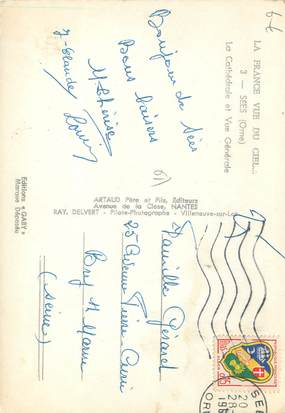 LA FRANCE VUE DU CIEL...
3 - SÉES (Orne)
La Cathédrale et Vue Générale
6 €
Bonjour de Sées
Bons baisers
J. Claude
61
ARTAUD Père et Fils, Éditeurs
Avenue de la Close, NANTES
RAY. DELVERT - Pilote-Photographe - Villeneuve-sur-Lot
Éditions « GABY »
Marque Déposée
Famille Gérard
25 Avenue Pierre Curie
Bry s/ Marne
(Seine)